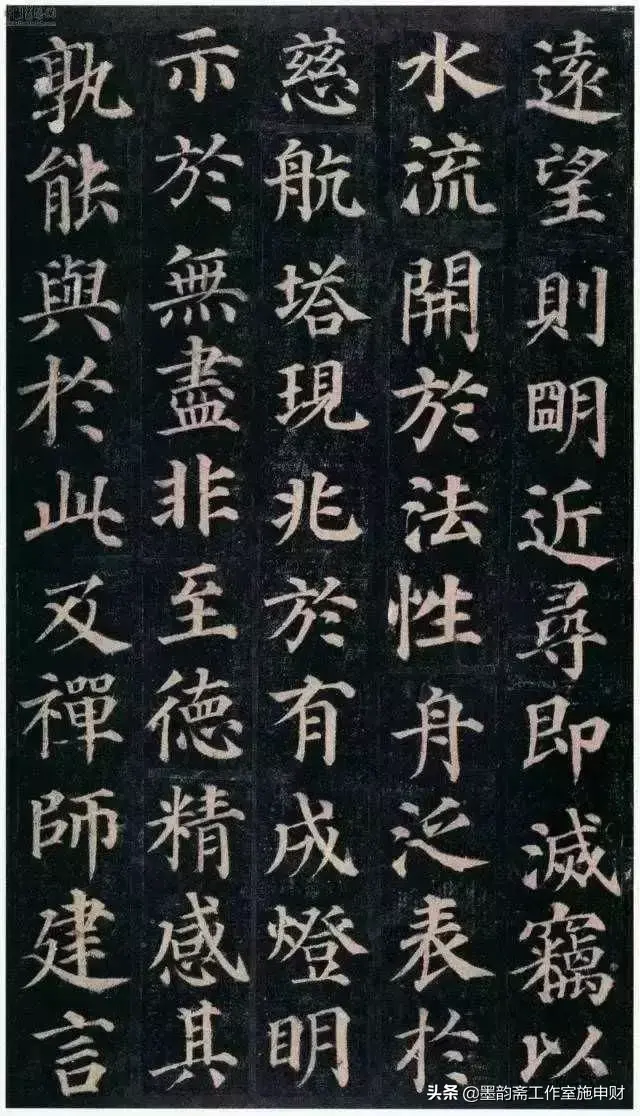 遠望則明近尋即滅竊以
水流開於法性舟泛表於
慈航塔現兆於有成燈明
示於無盡非至德精感其
孰能與於此及禪師建言
头条 @墨韵斋工作室施申财